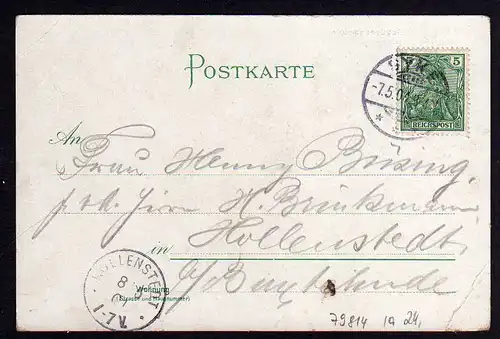 POSTKARTE
5
REICHSPOST
-7.5.0
An
Frau Henny Büsing,
Herrn H. Brinkmann
in Hollenstedt
HOLLENSTEDT
8
1-7 V.
Wohnung
(Strasse und Hausnummer)
b/Buxtehude
79814 24,